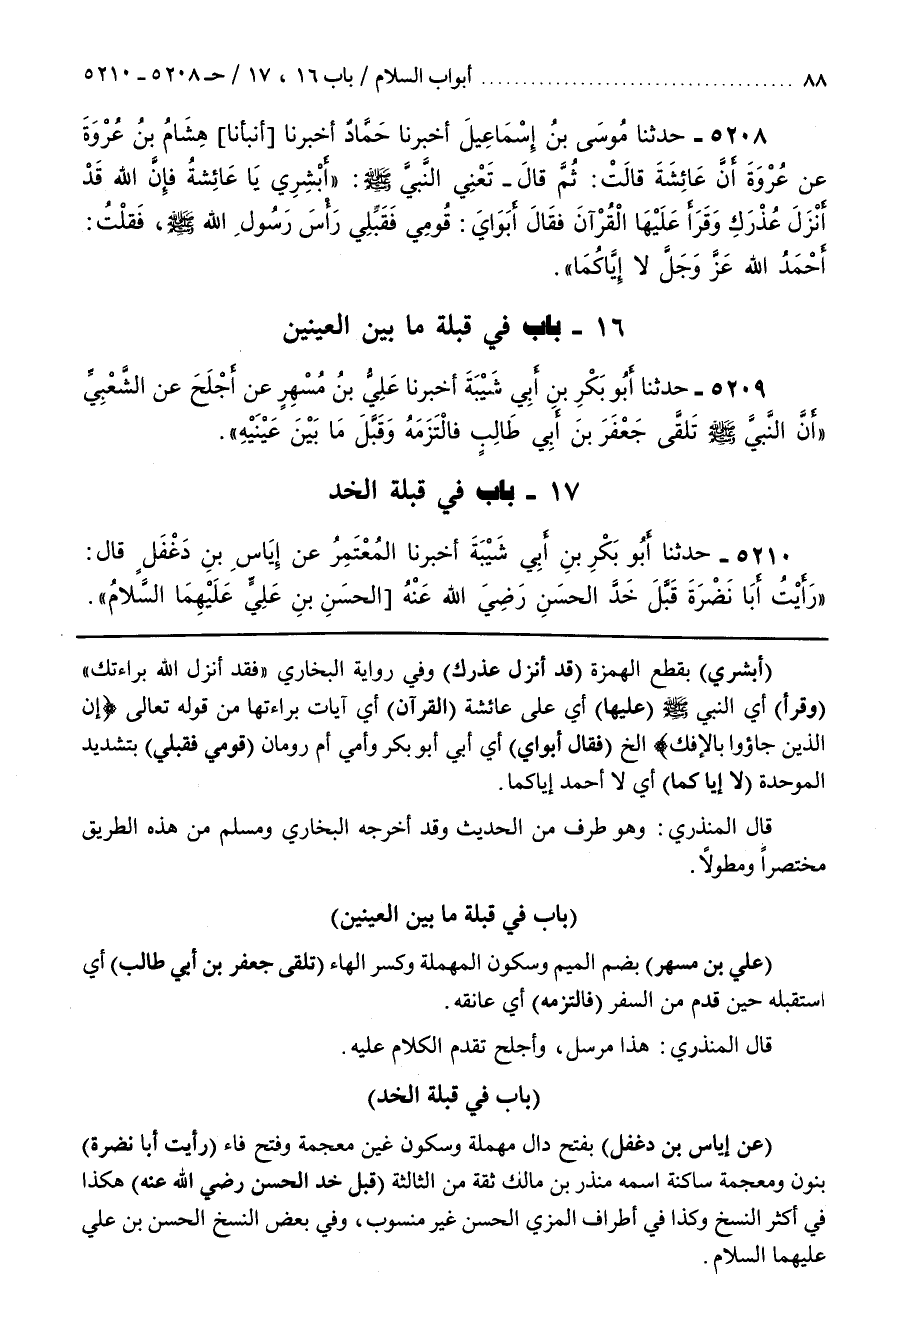 ٨٨ ...................................... أبواب السلام / باب ١٦ ، ١٧ / حـ ٥٢٠٨ ـ ٥٢١٠
٥٢٠٨ ـ حدثنا مُوسَى بنُ إِسْمَاعِيلَ أخبرنا حَمَّادٌ أخبرنا [أنبأنا] هِشَامُ بنُ عُرْوَةَ
عن عُرْوَةَ أَنَّ عَائِشَةَ قالَتْ: ثُمَّ قالَ ـ تَعْنِي النَّبيَّ ﷺ: «أَبْشِرِي يَا عَائِشةُ فإِنَّ الله قَدْ
أَنْزَلَ عُذْرَكِ وَقَرَأَ عَلَيْهَا الْقُرْآنَ فقَالَ أَبَوَايَ: قُومِي فَقَبِّلِي رَأْسَ رَسُولِ الله ﷺ، فَقلْتُ:
أَحْمَدُ الله عَزَّ وَجَلَّ لا إِيَّاكُمَا».
١٦ ـ باب في قبلة ما بين العينين
٥٢٠٩ ـ حدثنا أَبُو بَكْرِ بنِ أَبِي شَيْبَةَ أخبرنا عَلِيُّ بنُ مُسْهِرٍ عن أَجْلَحَ عن الشَّعْبِيِّ
«أَنَّ النَّبيَّ ﷺ تَلَقَّى جَعْفَرَ بنَ أَبِي طَالِبٍ فالْتَزَمَهُ وَقَبَّلَ مَا بَيْنَ عَيْنَيْهِ».
١٧ ـ باب في قبلة الخد
٥٢١٠ ـ حدثنا أَبُو بَكْرِ بنِ أَبِي شَيْبَةَ أخبرنا المُعْتَمِرُ عن إِيَاسِ بنِ دَغْفَلٍ قال:
«رَأَيْتُ أَبَا نَضْرَةَ قَبَّلَ خَدَّ الحسَنِ رَضِيَ الله عَنْهُ [الحسَنِ بنِ عَلِيٍّ عَلَيْهِمَا السَّلَامُ».
(أبشري) بقطع الهمزة (قد أنزل عذرك) وفي رواية البخاري «فقد أنزل الله براءتك»
(وقرأ) أي النبي ﷺ (عليها) أي على عائشة (القرآن) أي آيات براءتها من قوله تعالى ﴿إن
الذين جاؤوا بالإفك﴾ الخ (فقال أبواي) أي أبي أبو بكر وأمي أم رومان (قومي فقبلي) بتشديد
الموحدة (لا إيا كما) أي لا أحمد إياكما.
قال المنذري: وهو طرف من الحديث وقد أخرجه البخاري ومسلم من هذه الطريق
مختصراً ومطولاً.
(باب في قبلة ما بين العينين)
(علي بن مسهر) بضم الميم وسكون المهملة وكسر الهاء (تلقى جعفر بن أبي طالب) أي
استقبله حين قدم من السفر (فالتزمه) أي عانقه.
قال المنذري: هذا مرسل، وأجلح تقدم الكلام عليه.
(باب في قبلة الخد)
(عن إياس بن دغفل) بفتح دال مهملة وسكون غين معجمة وفتح فاء (رأيت أبا نضرة)
بنون ومعجمة ساكنة اسمه منذر بن مالك ثقة من الثالثة (قبل خد الحسن رضي الله عنه) هكذا
في أكثر النسخ وكذا في أطراف المزي الحسن غير منسوب، وفي بعض النسخ الحسن بن علي
عليهما السلام.